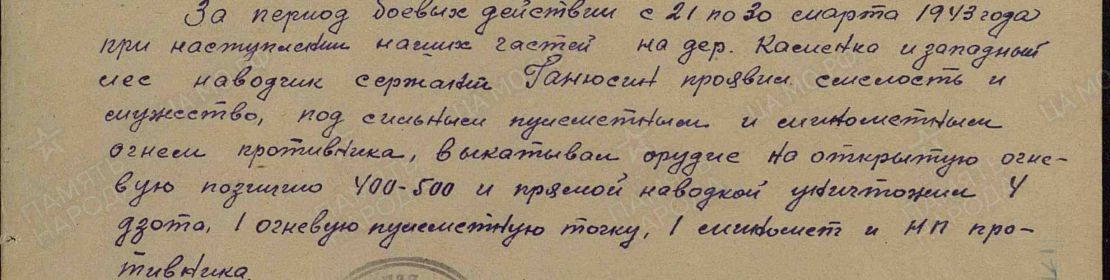 За период боевых действии с 21 по 30 марта 1943 года
при наступлении наших частей на дер. Каменка и западный
лес наводчик сержант Ганюсин проявил смелость и
мужество, под сильным пулеметным и минометным
огнем противника, выкатывал орудие на открытую огне-
вую позицию 400-500 и прямой наводкой уничтожил 4
дзота, 1 огневую пулеметную точку, 1 миномет и НП про-
тивника.